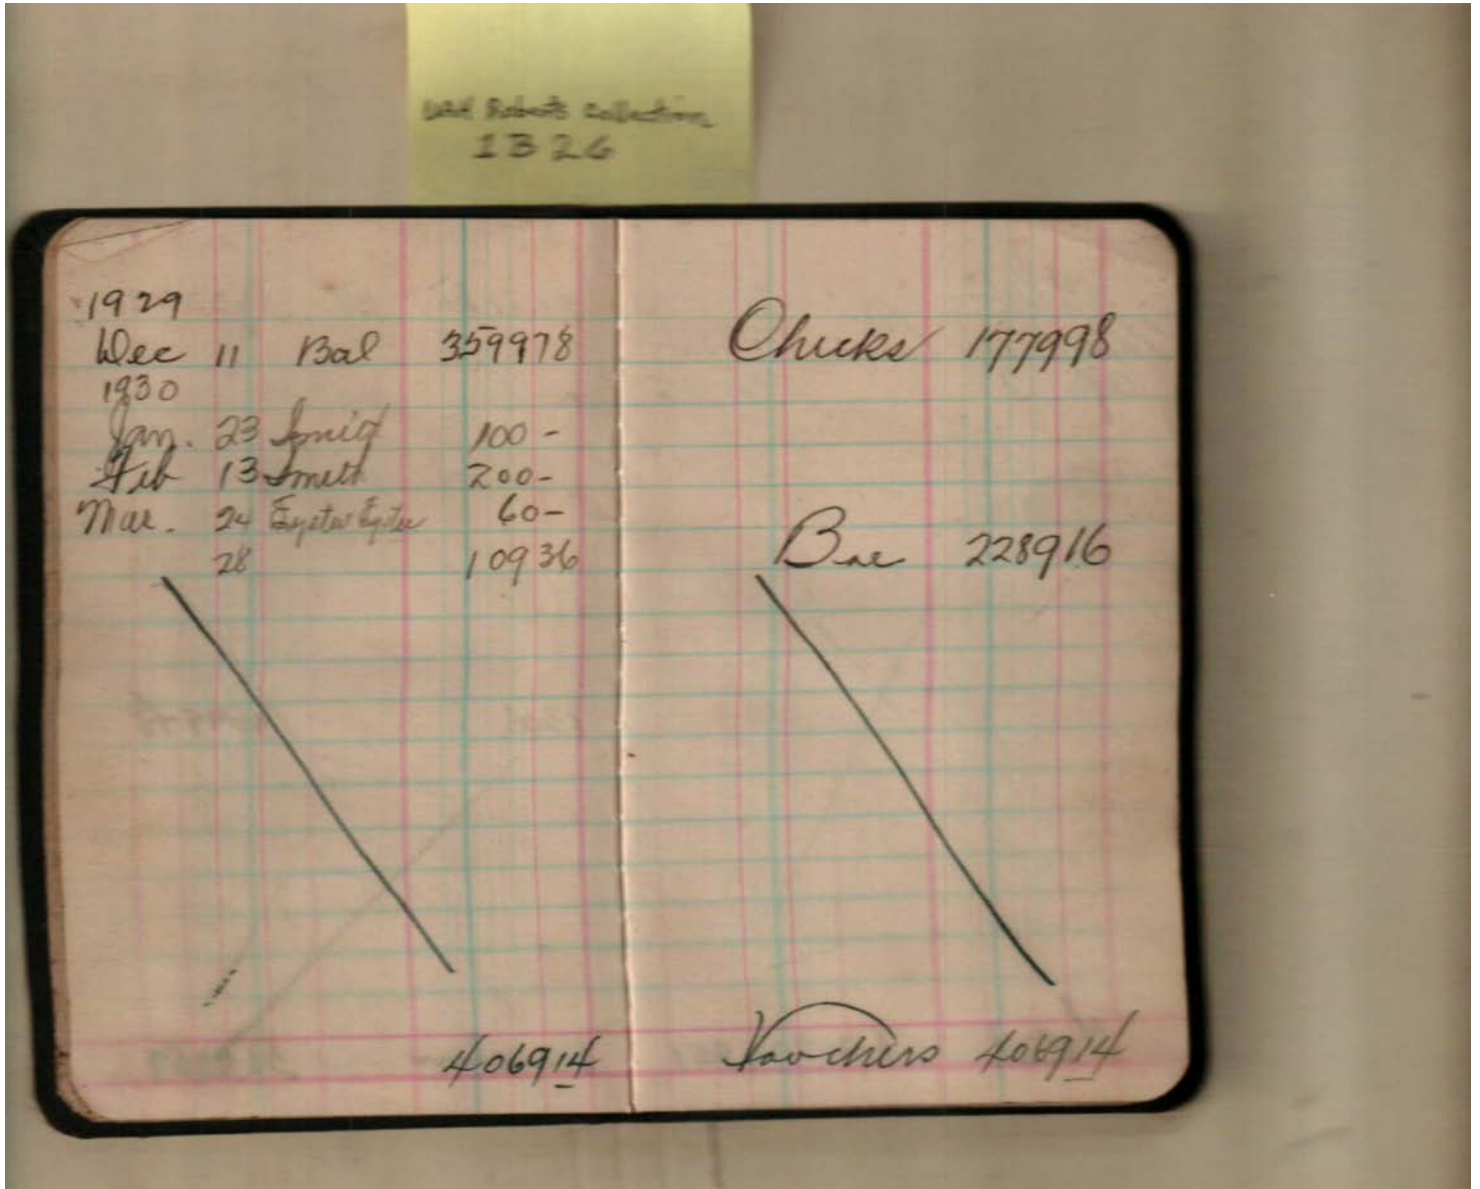 UAH Roberts Collection
1326
1929
Dec 11 Bal 359978
1930
Jan. 23 100 -
Feb 13 Smith 200-
Mar. 24 Eyster Eyster 60-
28 10936
406914
Checks 177998
Bal 228916
Vouchers 406914